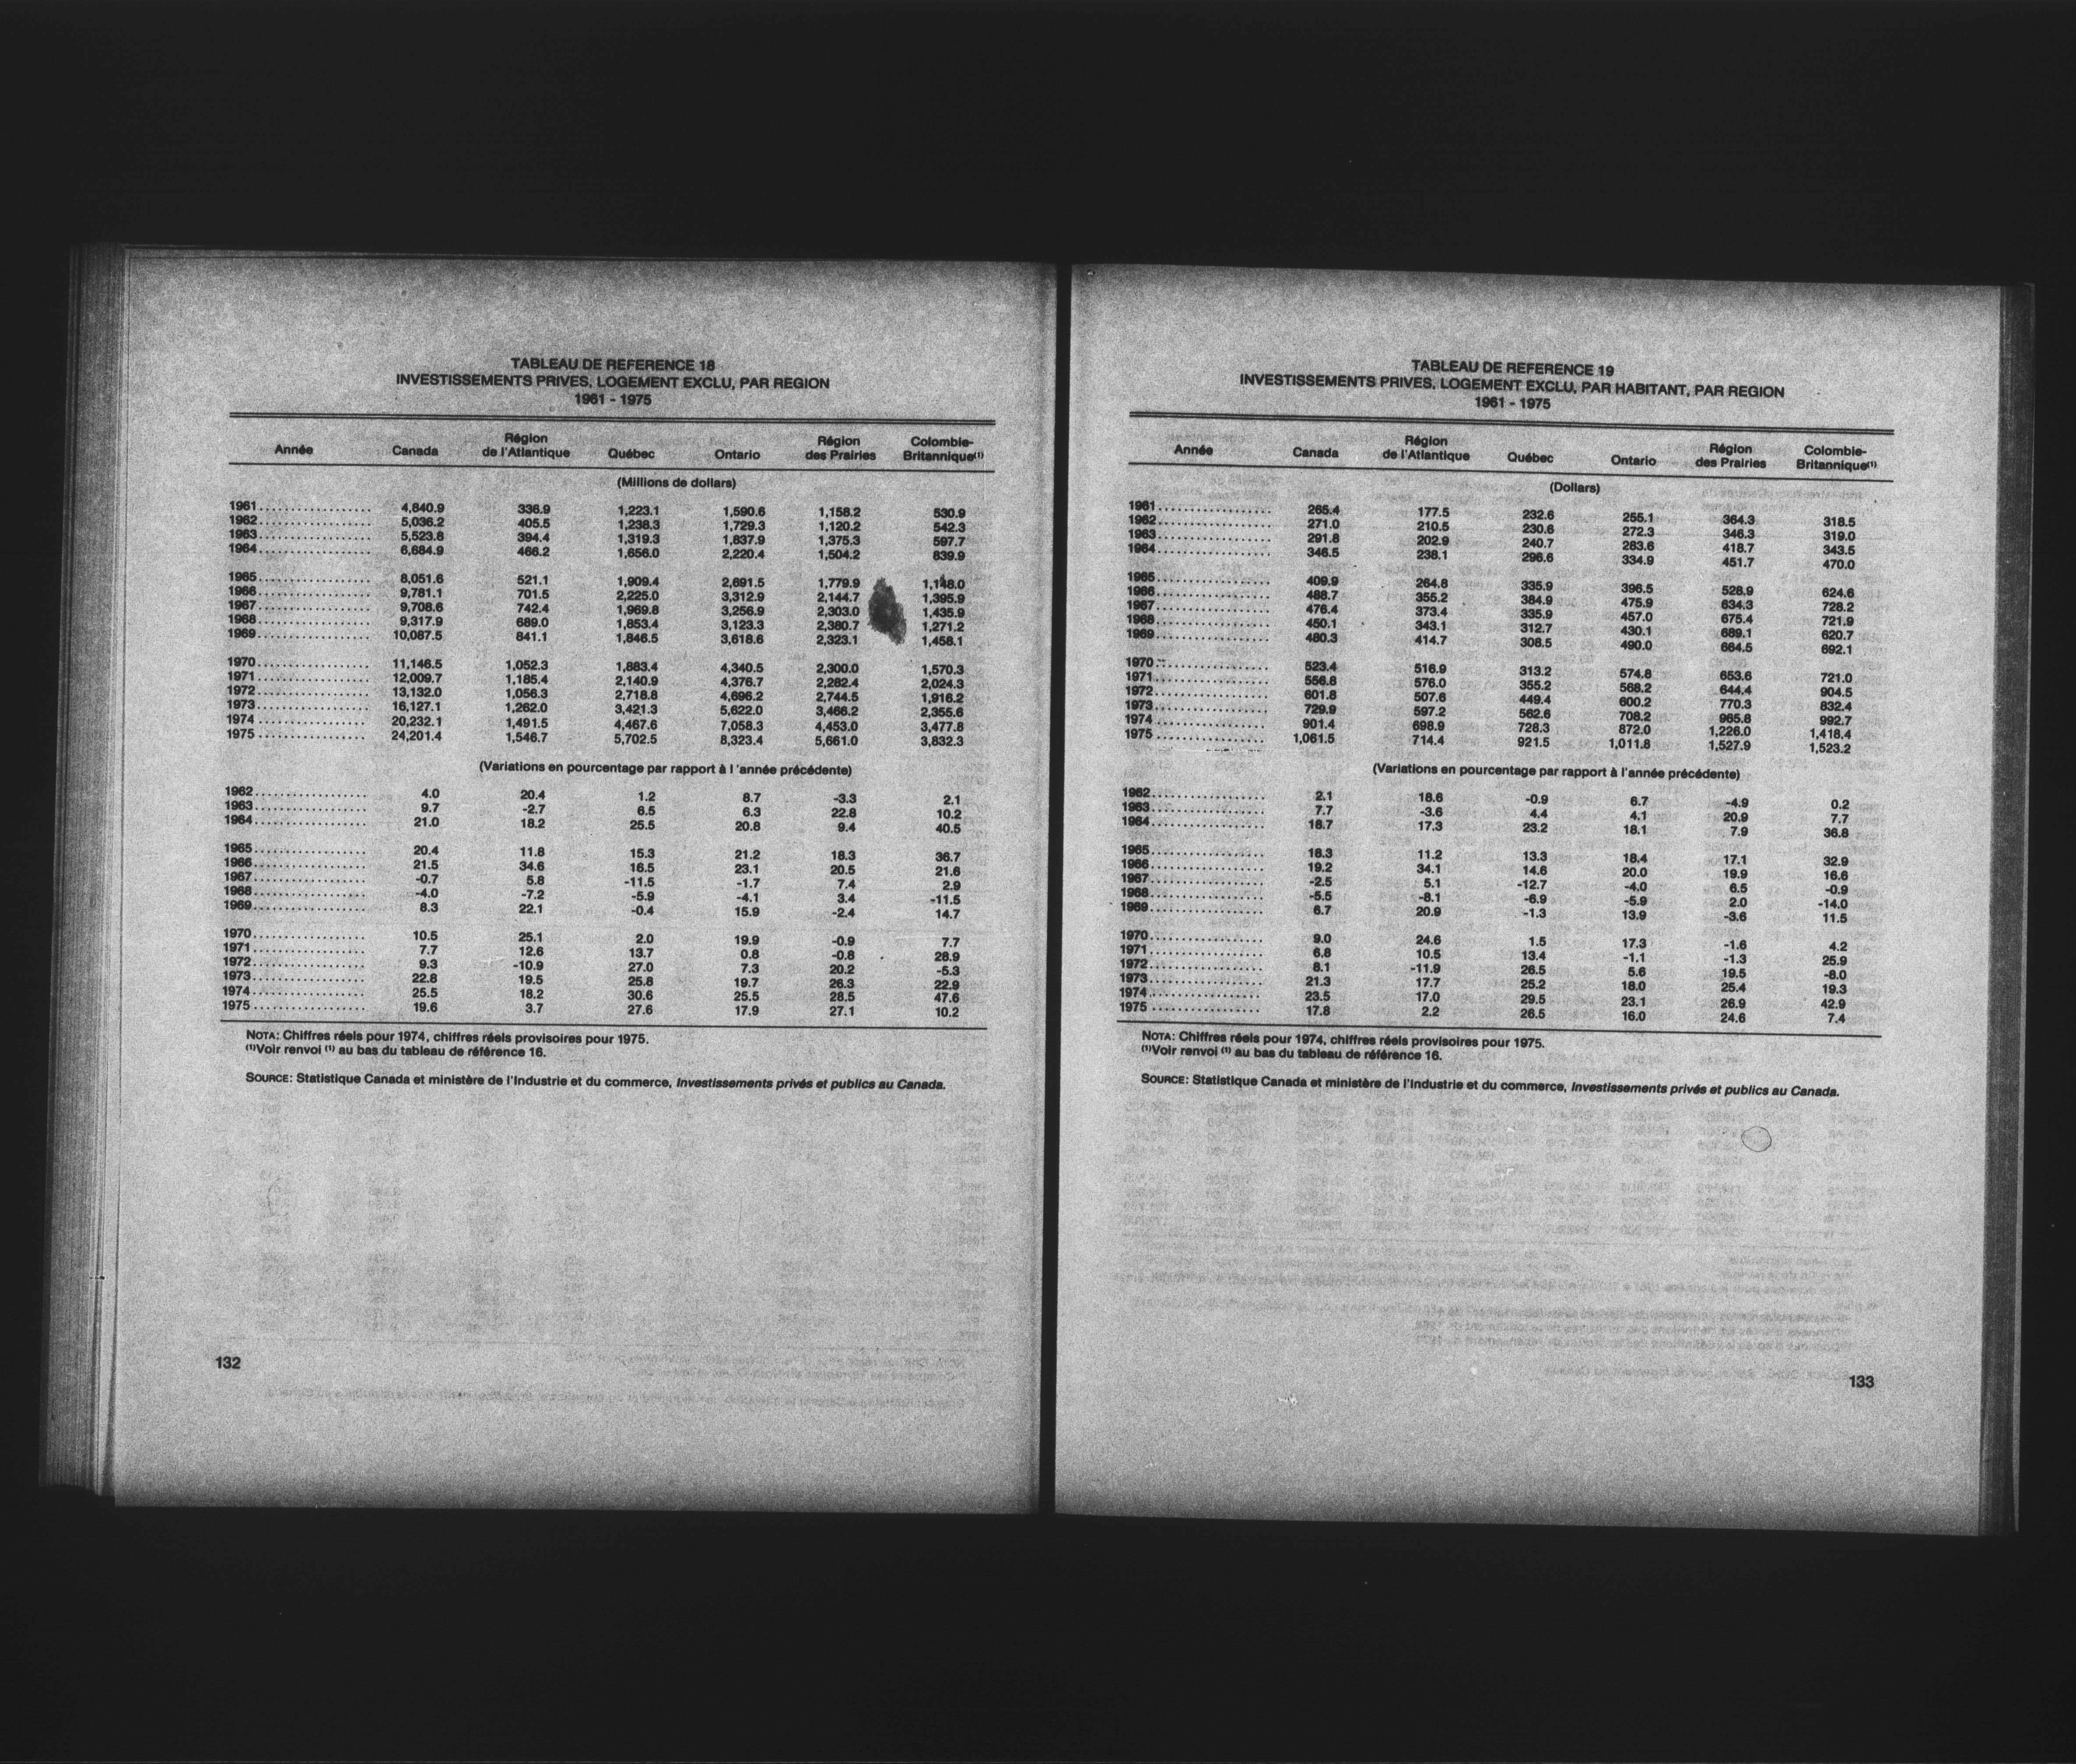 TABLEAU DE REFERENCE 18
INVESTISSEMENTS PRIVES, LOGEMENT EXCLU, PAR REGION
1961 - 1975
Année Canada Région de l'Atlantique Québec Ontario Région des Prairies Colombie-Britannique(1)
(Millions de dollars)
1961 4,840.9 336.9 1,223.1 1,590.6 1,158.2 530.9
1962 5,036.2 405.5 1,238.3 1,729.3 1,120.2 542.3
1963 5,523.8 394.4 1,319.3 1,837.9 1,375.3 597.7
1964 6,684.9 466.2 1,656.0 2,220.4 1,504.2 839.9
1965 8,051.6 521.1 1,909.4 2,691.5 1,779.9 1,148.0
1966 9,781.1 701.5 2,225.0 3,312.9 2,144.7 1,395.9
1967 9,708.6 742.4 1,969.8 3,256.9 2,303.0 1,435.9
1968 9,317.9 689.0 1,853.4 3,123.3 2,380.7 1,271.2
1969 10,087.5 841.1 1,846.5 3,618.6 2,323.1 1,458.1
1970 11,146.5 1,052.3 1,883.4 4,340.5 2,300.0 1,570.3
1971 12,009.7 1,185.4 2,140.9 4,376.7 2,282.4 2,024.3
1972 13,132.0 1,056.3 2,718.8 4,696.2 2,744.5 1,916.2
1973 16,127.1 1,262.0 3,421.3 5,622.0 3,466.2 2,355.6
1974 20,232.1 1,491.5 4,467.6 7,058.3 4,453.0 3,477.8
1975 24,201.4 1,546.7 5,702.5 8,323.4 5,661.0 3,832.3
(Variations en pourcentage par rapport à l'année précédente)
1962 4.0 20.4 1.2 8.7 -3.3 2.1
1963 9.7 -2.7 6.5 6.3 22.8 10.2
1964 21.0 18.2 25.5 20.8 9.4 40.5
1965 20.4 11.8 15.3 21.2 18.3 36.7
1966 21.5 34.6 16.5 23.1 20.5 21.6
1967 -0.7 5.8 -11.5 -1.7 7.4 2.9
1968 -4.0 -7.2 -5.9 -4.1 3.4 -11.5
1969 8.3 22.1 -0.4 15.9 -2.4 14.7
1970 10.5 25.1 2.0 19.9 -0.9 7.7
1971 7.7 12.6 13.7 0.8 -0.8 28.9
1972 9.3 -10.9 27.0 7.3 20.2 -5.3
1973 22.8 19.5 25.8 19.7 26.3 22.9
1974 25.5 18.2 30.6 25.5 28.5 47.6
1975 19.6 3.7 27.6 17.9 27.1 10.2
NOTA: Chiffres réels pour 1974, chiffres réels provisoires pour 1975.
(1)Voir renvoi (1) au bas du tableau de référence 16.
SOURCE: Statistique Canada et ministère de l'Industrie et du commerce, Investissements privés et publics au Canada.
132
TABLEAU DE REFERENCE 19
INVESTISSEMENTS PRIVES, LOGEMENT EXCLU, PAR HABITANT, PAR REGION
1961 - 1975
Année Canada Région de l'Atlantique Québec Ontario Région des Prairies Colombie-Britannique(1)
(Dollars)
1961 265.4 177.5 232.6 255.1 364.3 318.5
1962 271.0 210.5 230.6 272.3 346.3 319.0
1963 291.8 202.9 240.7 283.6 418.7 343.5
1964 346.5 238.1 296.6 334.9 451.7 470.0
1965 409.9 264.8 335.9 396.5 528.9 624.6
1966 488.7 355.2 384.9 475.9 634.3 728.2
1967 476.4 373.4 335.9 457.0 675.4 721.9
1968 450.1 343.1 312.7 430.1 689.1 620.7
1969 480.3 414.7 308.5 490.0 664.5 692.1
1970 523.4 516.9 313.2 574.8 653.6 721.0
1971 556.8 576.0 355.2 568.2 644.4 904.5
1972 601.8 507.6 449.4 600.2 770.3 832.4
1973 729.9 597.2 562.6 708.2 965.8 992.7
1974 901.4 698.9 728.3 872.0 1,226.0 1,418.4
1975 1,061.5 714.4 921.5 1,011.8 1,527.9 1,523.2
(Variations en pourcentage par rapport à l'année précédente)
1962 2.1 18.6 -0.9 6.7 -4.9 0.2
1963 7.7 -3.6 4.4 4.1 20.9 7.7
1964 18.7 17.3 23.2 18.1 7.9 36.8
1965 18.3 11.2 13.3 18.4 17.1 32.9
1966 19.2 34.1 14.6 20.0 19.9 16.6
1967 -2.5 5.1 -12.7 -4.0 6.5 -0.9
1968 -5.5 -8.1 -6.9 -5.9 2.0 -14.0
1969 6.7 20.9 -1.3 13.9 -3.6 11.5
1970 9.0 24.6 1.5 17.3 -1.6 4.2
1971 6.8 10.5 13.4 -1.1 -1.3 25.9
1972 8.1 -11.9 26.5 5.6 19.5 -8.0
1973 21.3 17.7 25.2 18.0 25.4 19.3
1974 23.5 17.0 29.5 23.1 26.9 42.9
1975 17.8 2.2 26.5 16.0 24.6 7.4
NOTA: Chiffres réels pour 1974, chiffres réels provisoires pour 1975.
(1)Voir renvoi (1) au bas du tableau de référence 16.
SOURCE: Statistique Canada et ministère de l'Industrie et du commerce, Investissements privés et publics au Canada.
133